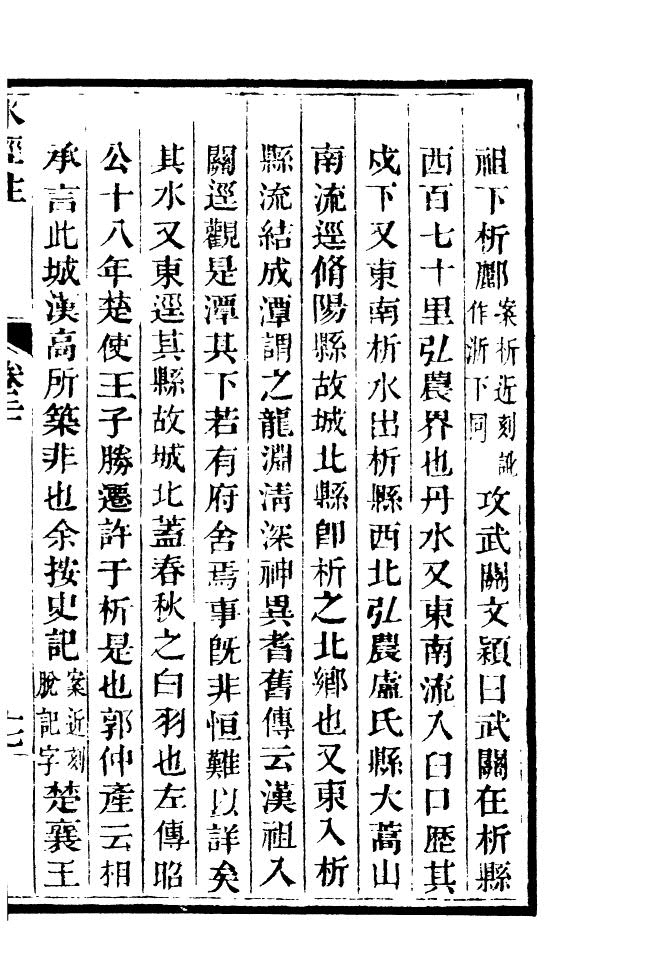 祖下析酈案析近刻訛作淅下同攻武關文穎曰武關在析縣
西百七十里弘農界也丹水又東南流入臼口歷其
戍下又東南析水出析縣西北弘農盧氏縣大蒿山
南流逕脩陽縣故城北縣卽析之北鄉也又東入析
縣流結成潭謂之龍淵淸深神異耆舊傳云漢祖入
關逕觀是潭其下若有府舍焉事旣非恒難以詳矣
其水又東逕其縣故城北蓋春秋之白羽也左傳昭
公十八年楚使王子勝遷許于析是也郭仲產云相
承言此城漢高所築非也余按史記案近刻脫記字楚襄王
水經注 卷二十 十七